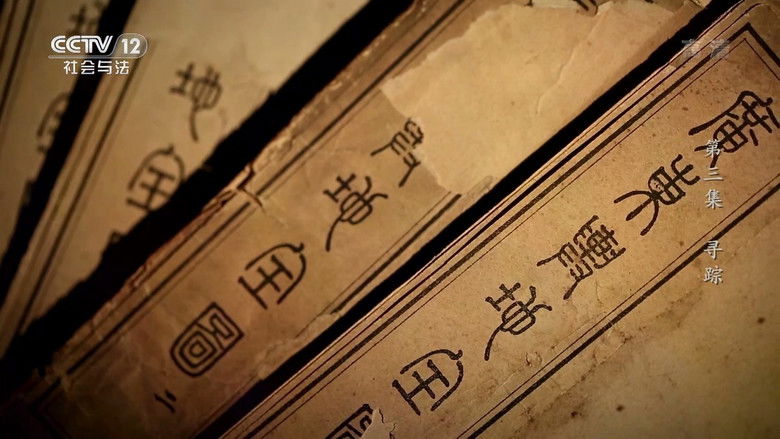 CCTV 12
社会与法
高清
第三集 寻踪
廣東輿地全圖
輿地全圖
地全